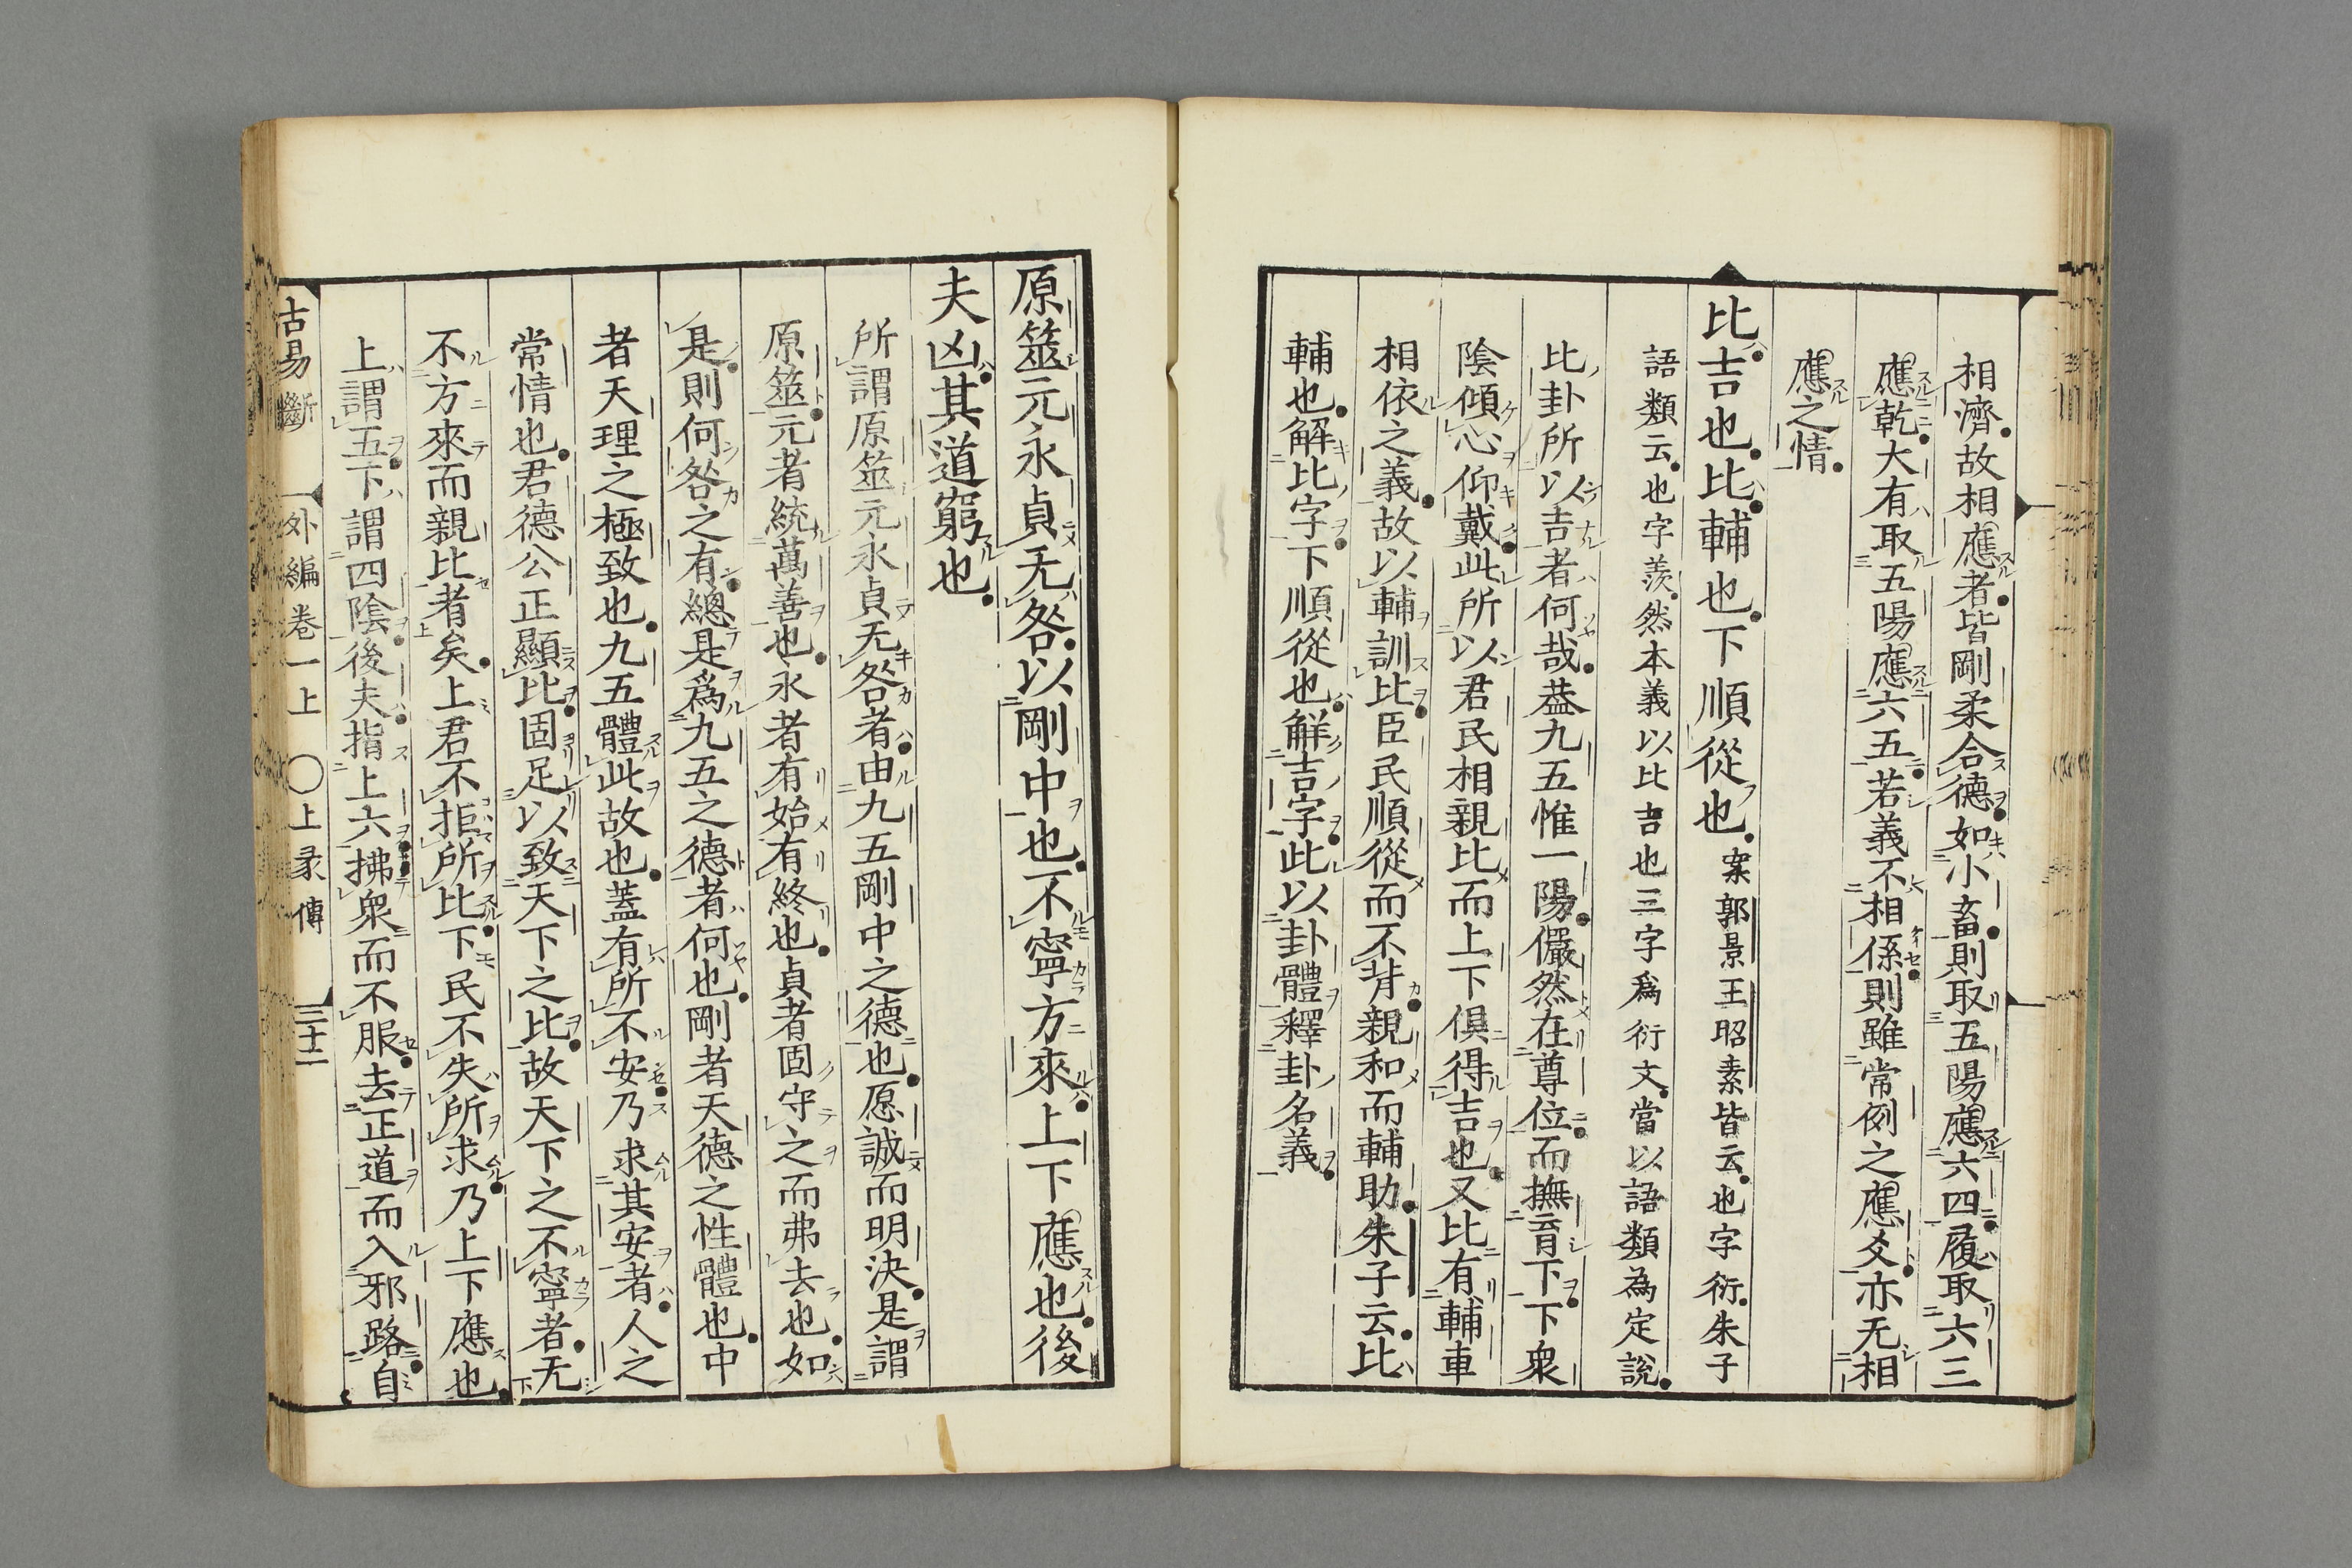 相濟故相應者皆剛柔合德如小畜則取五陽應六四履取六三
應乾大有取五陽應六五若義不相係則雖常例之應爻亦无相
應之情
比吉也比輔也下順從也案郭景王昭素皆云也字衍朱子
語類云也字羨然本義以比吉也三字爲衍文當以語類為定說
比卦所以吉者何哉葢九五惟一陽儼然在尊位而撫育下下衆
陰傾心仰戴此所以君民相親比而上下俱得吉也又比有輔車
相依之義故以輔訓比臣民順從而不背親和而輔助朱子云比
輔也解比字下順從也解吉字此以卦體釋卦名義
原筮元永貞无咎以剛中也不寧方來上下應也後
夫凶其道窮也
所謂原筮元永貞无咎者由九五剛中之德也愿誠而明決是謂
原筮元者統萬善也永者有始有終也貞者固守之而弗去也如
是則何咎之有總是爲九五之德者何也剛者天德之性體也中
者天理之極致也九五體此故也蓋有所不安乃求其安者人之
常情也君德公正顯比固足以致天下之比故天下之不寧者无
不方來而親比者矣上君不拒所比下民不失所求乃上下應也
上謂五下謂四陰後夫指上六拂衆而不服去正道而入邪路自
古易斷 外編卷一上 〇上彖傳 三十二